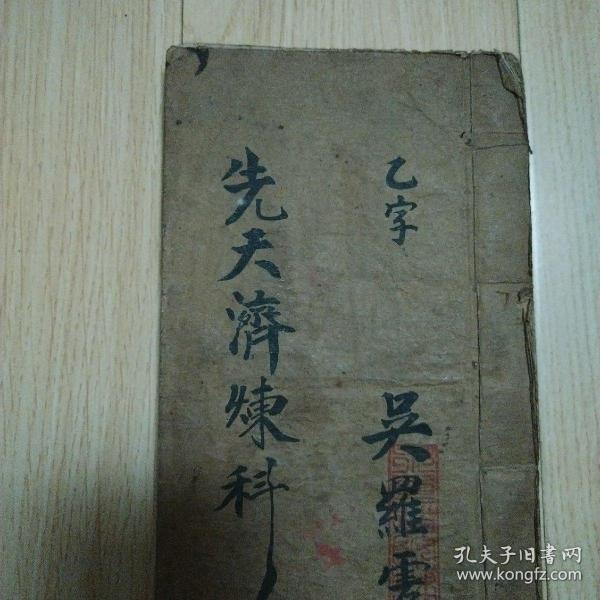 乙字
吳羅雲
先天濟煉科
孔夫子旧书网
www.kongfz.com